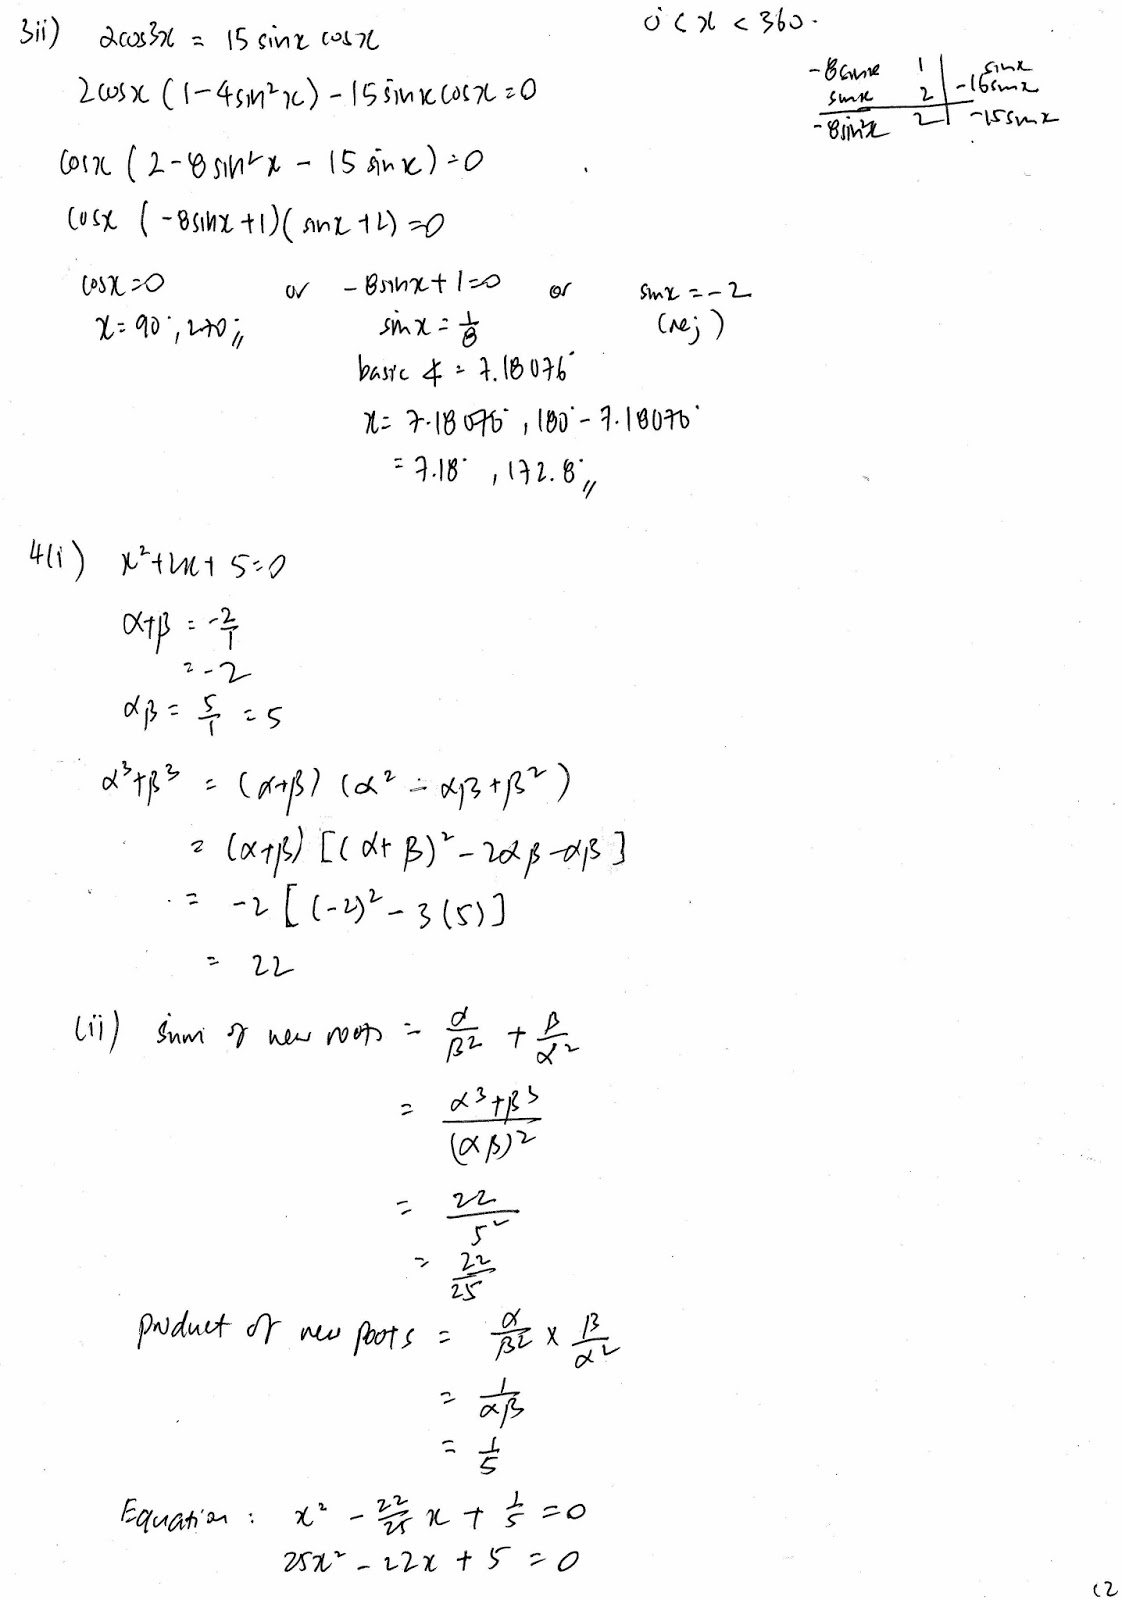 3ii) 2cos3x = 15 sinx cosx
0° < x < 360°
-8sinx 1 | sinx
sinx 2 | -16sinx
-8sin²x 2 | -15sinx
2cosx (1-4sin²x) - 15sinxcosx = 0
cosx (2-8sin²x - 15 sinx) = 0
cosx (-8sinx+1)(sinx+2) = 0
cosx=0 or -8sinx+1=0 or sinx = -2
x = 90°, 270°,, sinx = 1/8 (rej)
basic ∡ = 7.18076°
x = 7.18076°, 180° - 7.18076°
= 7.18°, 172.8°,,
4(i) x²+2x+5=0
α+β = -2/1
= -2
αβ = 5/1 = 5
α³+β³ = (α+β) (α² - αβ + β²)
= (α+β) [(α+β)² - 2αβ - αβ]
= -2 [(-2)² - 3(5)]
= 22
(ii) sum of new roots = α/β² + β/α²
= (α³+β³)/(αβ)²
= 22/5²
= 22/25
product of new roots = α/β² × β/α²
= 1/αβ
= 1/5
Equation : x² - 22/25 x + 1/5 = 0
25x² - 22x + 5 = 0